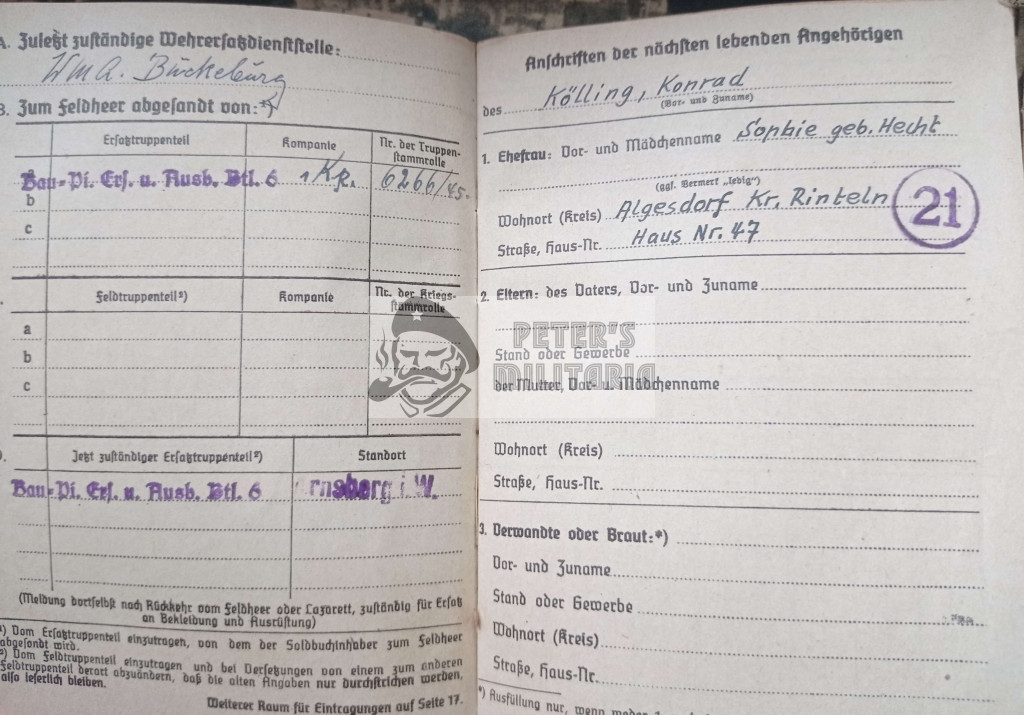 A. Zuletzt zuständige Wehrersatzdienststelle:
W M A. Bückeburg
B. Zum Feldheer abgesandt von:¹)
Ersatztruppenteil Kompanie Nr. der Truppenstammrolle
Bau-Pi. Ers. u. Ausb. Btl. 6 1 Kp. 6266/45.
b
c
Feldtruppenteil²) Kompanie Nr. der Kriegsstammrolle
a
b
c
Jetzt zuständiger Ersatztruppenteil²) Standort
Bau-Pi. Ers. u. Ausb. Btl. 6 rnsberg i. W.
(Meldung dortselbst nach Rückkehr vom Feldheer oder Lazarett, zuständig für Ersatz
an Bekleidung und Ausrüstung)
¹) Vom Ersatztruppenteil einzutragen, von dem der Soldbuchinhaber zum Feldheer
abgesandt wird.
²) Vom Feldtruppenteil einzutragen und bei Versetzungen von einem zum anderen
Feldtruppenteil derart abzuändern, daß die alten Angaben nur durchstrichen werden,
also leserlich bleiben.
Weiterer Raum für Eintragungen auf Seite 17.
Anschriften der nächsten lebenden Angehörigen
des Kölling, Konrad
(Vor- und Zuname)
1. Ehefrau: Vor- und Mädchenname Sophie geb. Hecht
(ggf. Vermerk „ledig")
Wohnort (Kreis) Algesdorf Kr. Rinteln
21
Straße, Haus-Nr. Haus Nr. 47
2. Eltern: des Vaters, Vor- und Zuname
Stand oder Gewerbe
der Mutter, Vor- u. Mädchenname
Wohnort (Kreis)
Straße, Haus-Nr.
3. Verwandte oder Braut:*)
Vor- und Zuname
Stand oder Gewerbe
Wohnort (Kreis)
Straße, Haus-Nr.
*) Ausfüllung nur, wenn weder
PETER'S
MILITARIA